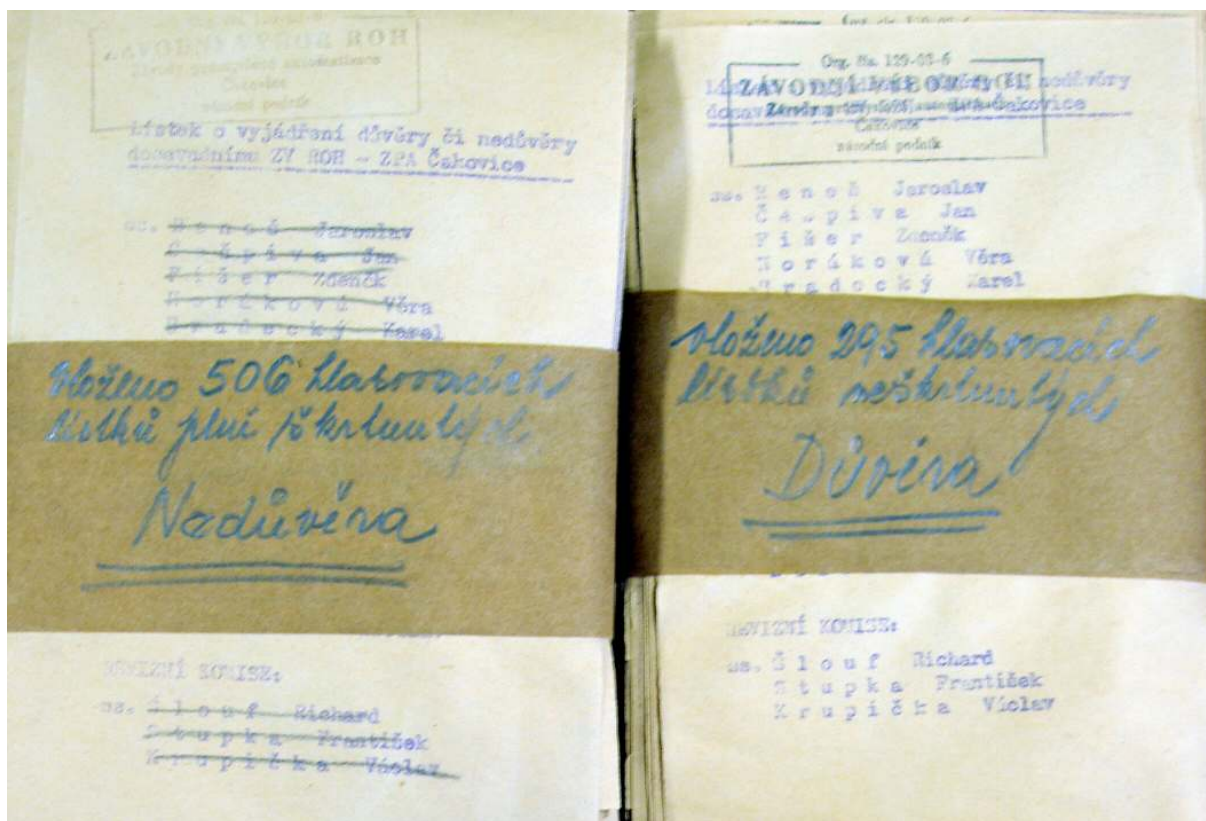 ZÁVODNÍ VÝBOR ROH
Závody průmyslové automatisace
Čakovice
národní podnik
Lístek o vyjádření důvěry či nedůvěry
dosavadnímu ZV ROH - ZPA Čakovice
ss. Beneš Jaroslav
Čepiva Jan
Fišer Zdeněk
Horáková Věra
Hradecký Karel
Vloženo 506 hlasovacích
lístků plně škrtnutých
Nedůvěra
REVIZNÍ KOMISE:
ss. Šlouf Richard
Stupka František
Krupička Václav
Org. čís. 129-03-6
ZÁVODNÍ VÝBOR ROH
Závody průmyslové automatisace
Čakovice
národní podnik
ss. Beneš Jaroslav
Čepiva Jan
Fišer Zdeněk
Horáková Věra
Hradecký Karel
vloženo 295 hlasovacích
lístků neškrtnutých
Důvěra
REVIZNÍ KOMISE:
ss. Šlouf Richard
Stupka František
Krupička Václav